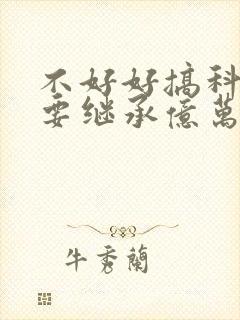 不好好搞科
要继承億萬
牛秀蘭